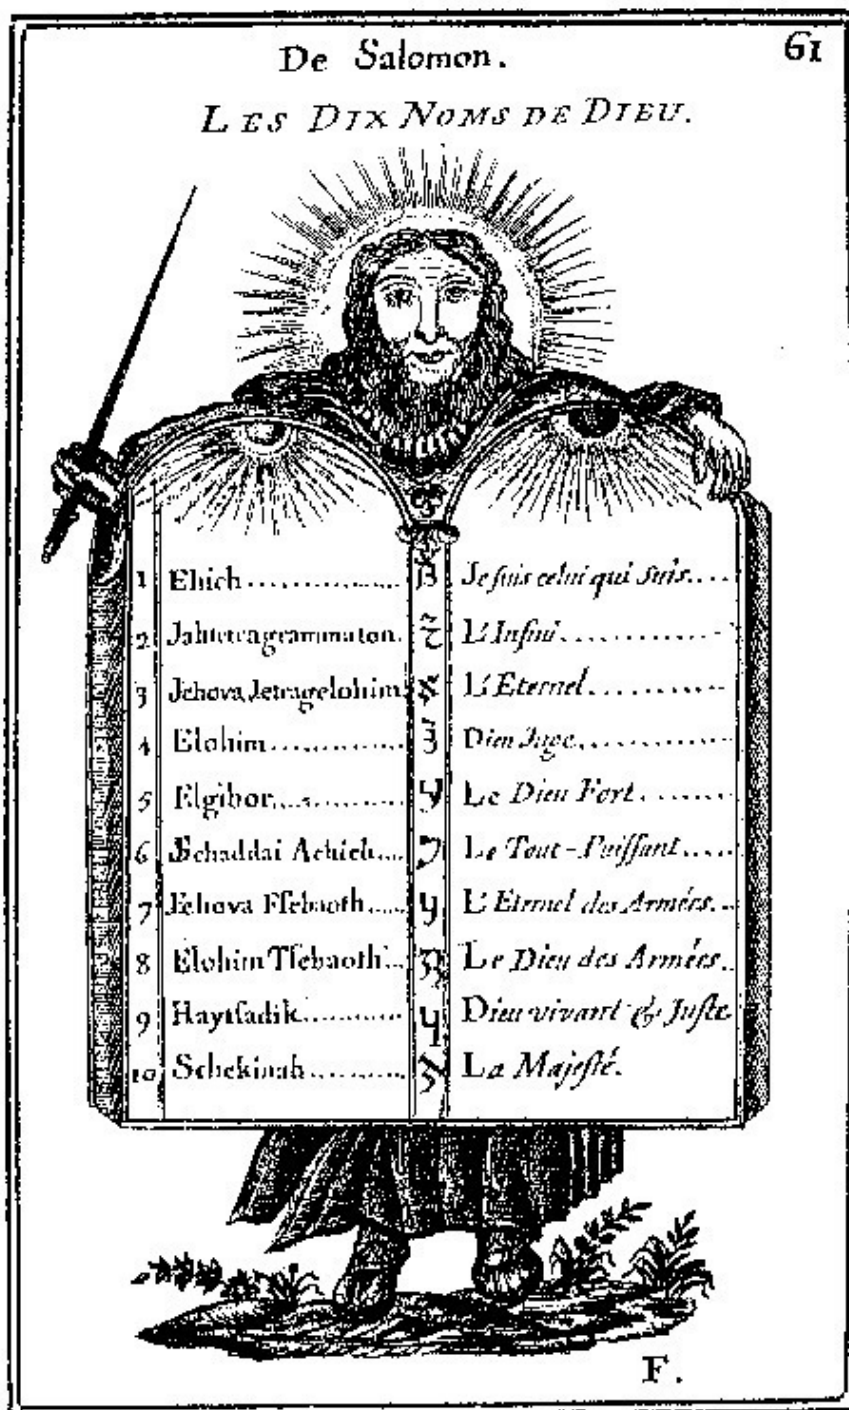 De Salomon. 61
LES DIX NOMS DE DIEU.
1 Ehieh................ Je suis celui qui suis....
2 Jahtetragrammaton. L'Infini................
3 Jehova Jetragelohim. L'Eternel..............
4 Elohim.............. Dieu Juge...............
5 Elgibor.............. Le Dieu Fort........
6 Schaddai Achieh.... Le Tout-Puissant.....
7 Jehova Fsebaoth..... L'Eternel des Armées...
8 Elohim Tsebaoth... Le Dieu des Armées..
9 Haytsadik........... Dieu vivant & Juste
10 Schekinah.......... La Majesté.
F.